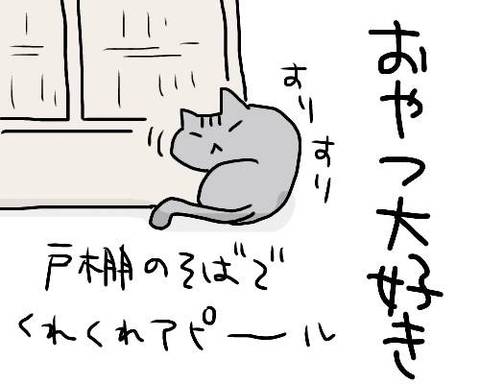 おやつ大好き
すりすり
戸棚のそばで
くれくれアピール